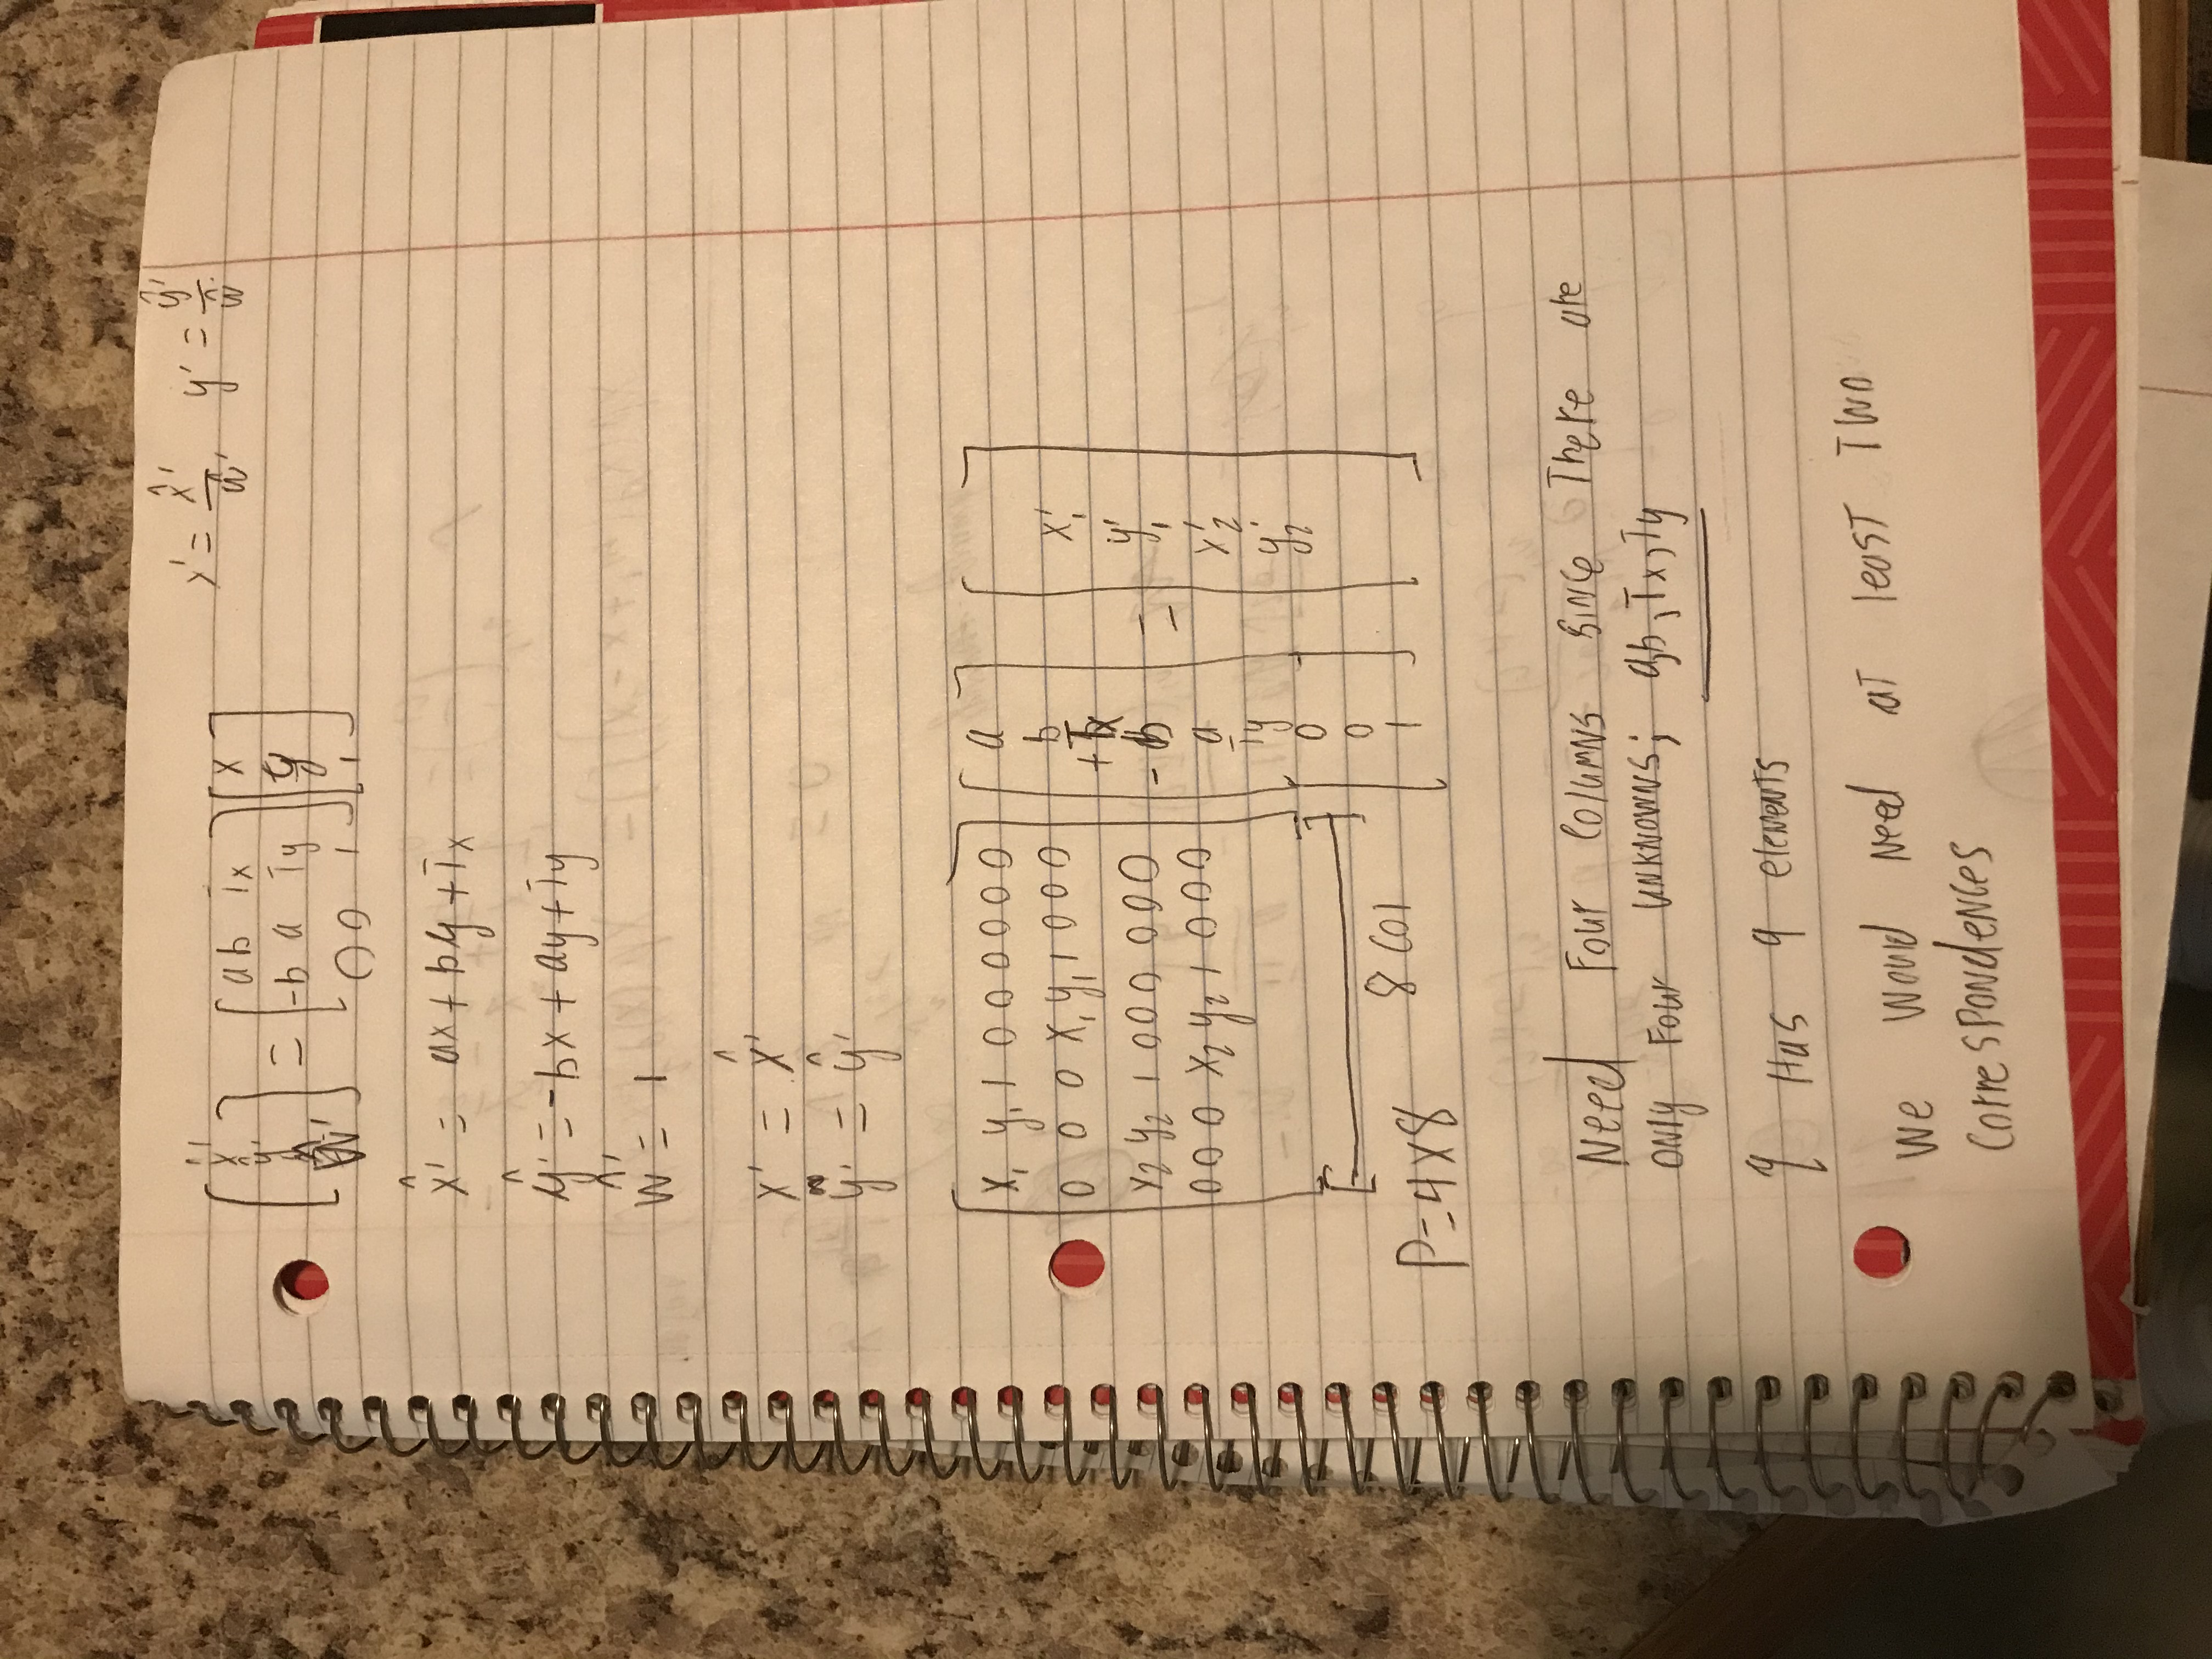 x' = x̂'/ŵ' y' = ŷ'/ŵ'
[x̂' ŷ' ŵ'] = [a b Tx; -b a Ty; 0 0 1] [x y 1]
x̂' = ax + by + Tx
ŷ' = -bx + ay + Ty
ŵ' = 1
x' = x̂'
y' = ŷ'
x₁ y₁ 1 0 0 0 0 0 0
0 0 0 x₁ y₁ 1 0 0 0
x₂ y₂ 1 0 0 0 0 0 0
0 0 0 x₂ y₂ 1 0 0 0
a
b
+Tx
-b
a
Ty
0
0
1
=
x₁'
y₁'
x₂'
y₂'
8 col
P=4x8
Need Four columns since There are
only Four unknowns; a,b,Tx,Ty
q Has 9 elements
We Would Need at least Two
Correspondences